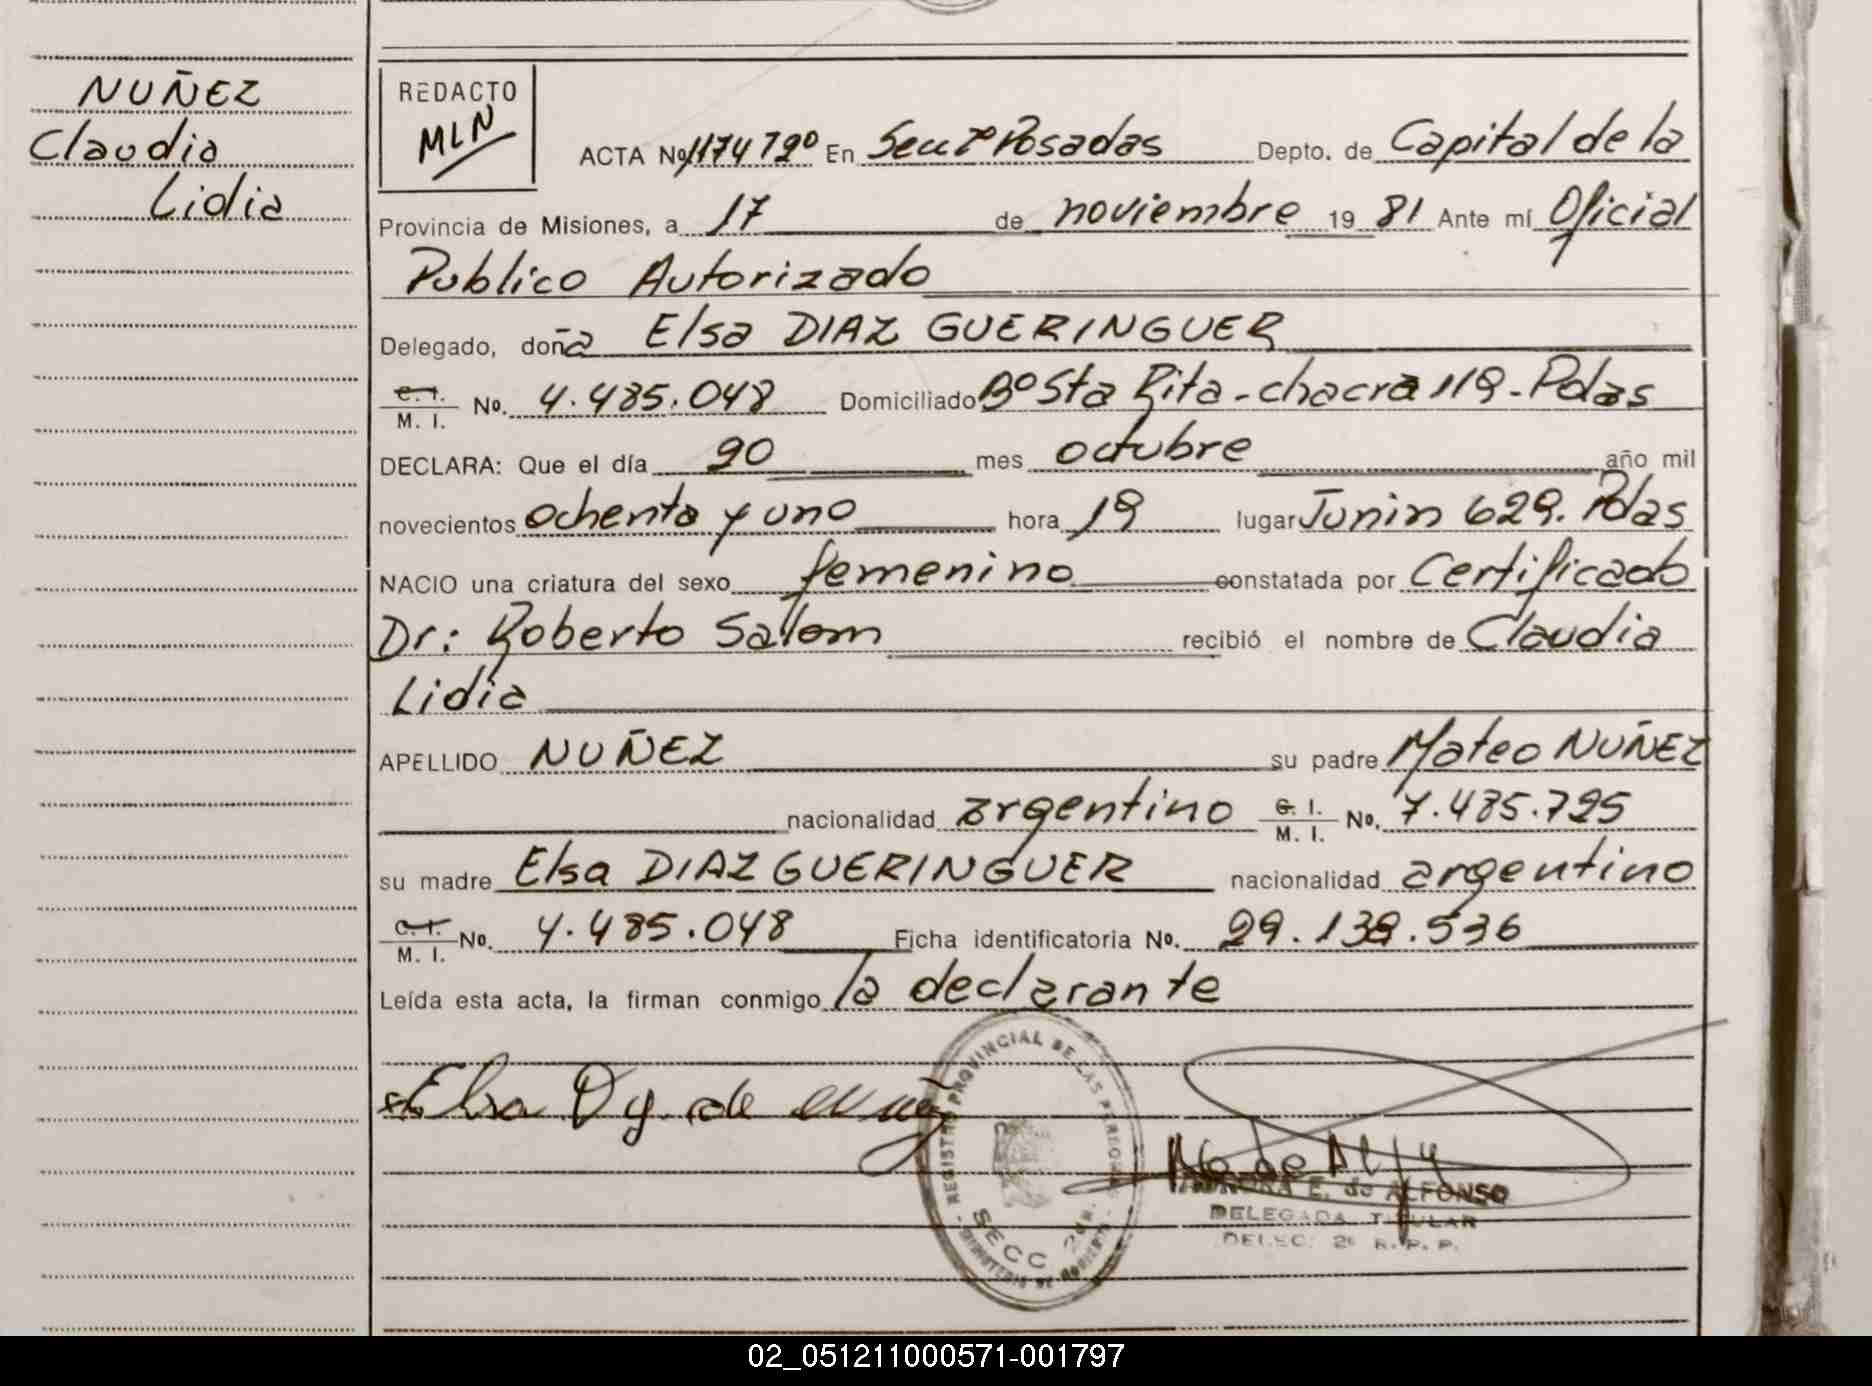 NUÑEZ
Claudia
Lidia
REDACTO
MLN
ACTA Nº 1174 79º En Secc 2º Posadas Depto. de Capital de la
Provincia de Misiones, a 17 de noviembre 19 81 Ante mí Oficial
Publico Autorizado
Delegado, doña Elsa DIAZ GUERINGUER
C. I.
M. I. No. 4.485.048 Domiciliado Bº Sta Rita - chacra 119 - Pdas
DECLARA: Que el día 20 mes octubre año mil
novecientos ochenta y uno hora 19 lugar Junin 629. Pdas
NACIO una criatura del sexo femenino constatada por Certificado
Dr: Roberto Salom recibió el nombre de Claudia
Lidia
APELLIDO NUÑEZ su padre Mateo NUÑEZ
nacionalidad argentino C. I.
M. I. No. 7.485.725
su madre Elsa DIAZ GUERINGUER nacionalidad argentino
C. I.
M. I. No. 4.485.048 Ficha identificatoria No. 29.138.536
Leída esta acta, la firman conmigo la declarante
Elsa D G. de
REGISTRO PROVINCIAL DE LAS PERSONAS
SECC 2da.
MINISTERIO DE GOBIERNO
AURORA E. de ALFONSO
DELEGADA TITULAR
DELEG. 2ª R. P. P.
02_051211000571-001797